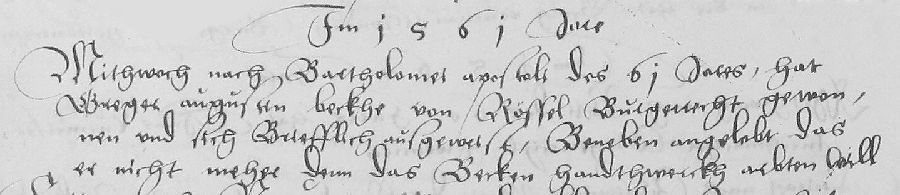 Im 1561 Jare
Mithwoch nach Bartholomei apostoli des 61 Jares, hat
Greger augustin beckhe von Rössel Burgerrecht gewon,
nen und sich Briefflich ausgeweist, Beneben angelobt das
er nicht mehre denn das Becken handthwerckh arbten will